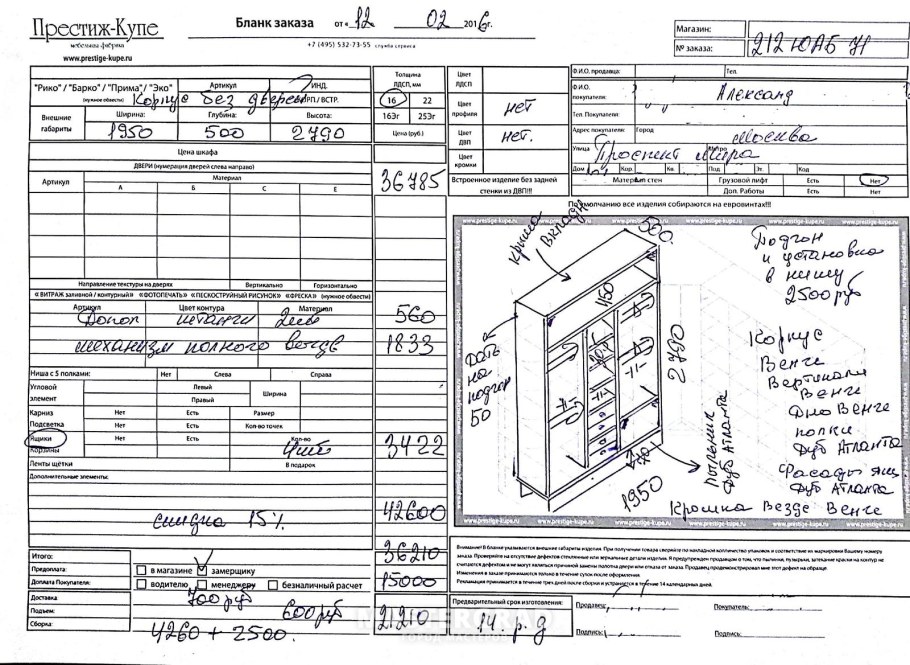 Престиж-Купе
мебельная фабрика
www.prestige-kupe.ru
Бланк заказа от «12» 02 2016г.
+7 (495) 532-73-55 служба сервиса
Магазин:
№ заказа: 212 ЮАБ 71
"Рико" / "Барко" / "Прима" / "Эко"
(нужное обвести)
Артикул
ИНД.
КОРП / ВСТР.
Корпус без дверей
Внешние габариты
Ширина: 1950
Глубина: 500
Высота: 2790
Толщина ЛДСП, мм
16 22
16Эг 25Эг
Цена (руб.)
Цвет ЛДСП
Цвет профиля нет
Цвет ДВП нет.
Цвет кромки
Встроенное изделие без задней стенки из ДВП!!!
Ф.И.О. продавца: Тел.
Ф.И.О. покупателя: Александ
Тел. Покупателя:
Адрес покупателя: Город Москва
Улица Проспект Мира Метро
Дом Кор. Кв. Под. Эт. Код
Материал стен Грузовой лифт Есть Нет
Доп. Работы Есть Нет
По умолчанию все изделия собираются на евровинтах!!!
Цена шкафа
ДВЕРИ (нумерация дверей слева направо)
36785
Артикул Материал
А Б С Е
Направление текстуры на дверях Вертикально Горизонтально
«ВИТРАЖ заливной / контурный» «ФОТОПЕЧАТЬ» «ПЕСКОСТРУЙНЫЙ РИСУНОК» «ФРЕСКА» (нужное обвести)
Артикул Цвет контура Материал
Допол штанги 2шт 560
механизм полного 1833
Ниша с 5 полками: Нет Слева Справа
Угловой элемент Левый Правый Ширина
Карниз Нет Есть Размер
Подсветка Нет Есть Кол-во точек
Ящики Нет Есть Кол-во 4шт 3422
Корзины
Ленты щётки В подарок
Дополнительные элементы:
42600
скидка 15%
Итого: 36210
Предоплата: в магазине замерщику 15000
Доплата Покупателя: водителю менеджеру безналичный расчет
Доставка 700 руб
Подъем: 600 руб 21210
Сборка: 4260 + 2500.
www.prestige-kupe.ru
крыша вкладн
500.
1150
2790
Дать на подгон 50
1950
Пыльник Дуб Атланта
Подгон и установка в нишу 2500 руб
Корпус Венге
Вертикали Венге
Дно Венге
полки Дуб Атланта
Фасады ящ. Дуб Атланта
Кромка Везде Венге
Внимание! В бланке указываются внешние габариты изделия. При получении товара сверяйте по накладной количество упаковок и соответствие их маркировки Вашему номеру
заказа. Проверяйте на отсутствие дефектов стекольные или зеркальные детали изделия. Я предупрежден продавцом о том, что пылинки, пузырьки, затекание краски на контур не
считаются дефектом и не могут являться причиной замены полотна двери или отказа от заказа. Продавец продемонстрировал мне этот дефект на образце.
Изменения в заказе принимаются только в течение суток после оформления.
Рекламация принимается в течение трех дней после сборки и устраняется в течение 14 календарных дней.
Предварительный срок изготовления: 14. р. д
Продавец: Покупатель:
Подпись: Подпись: